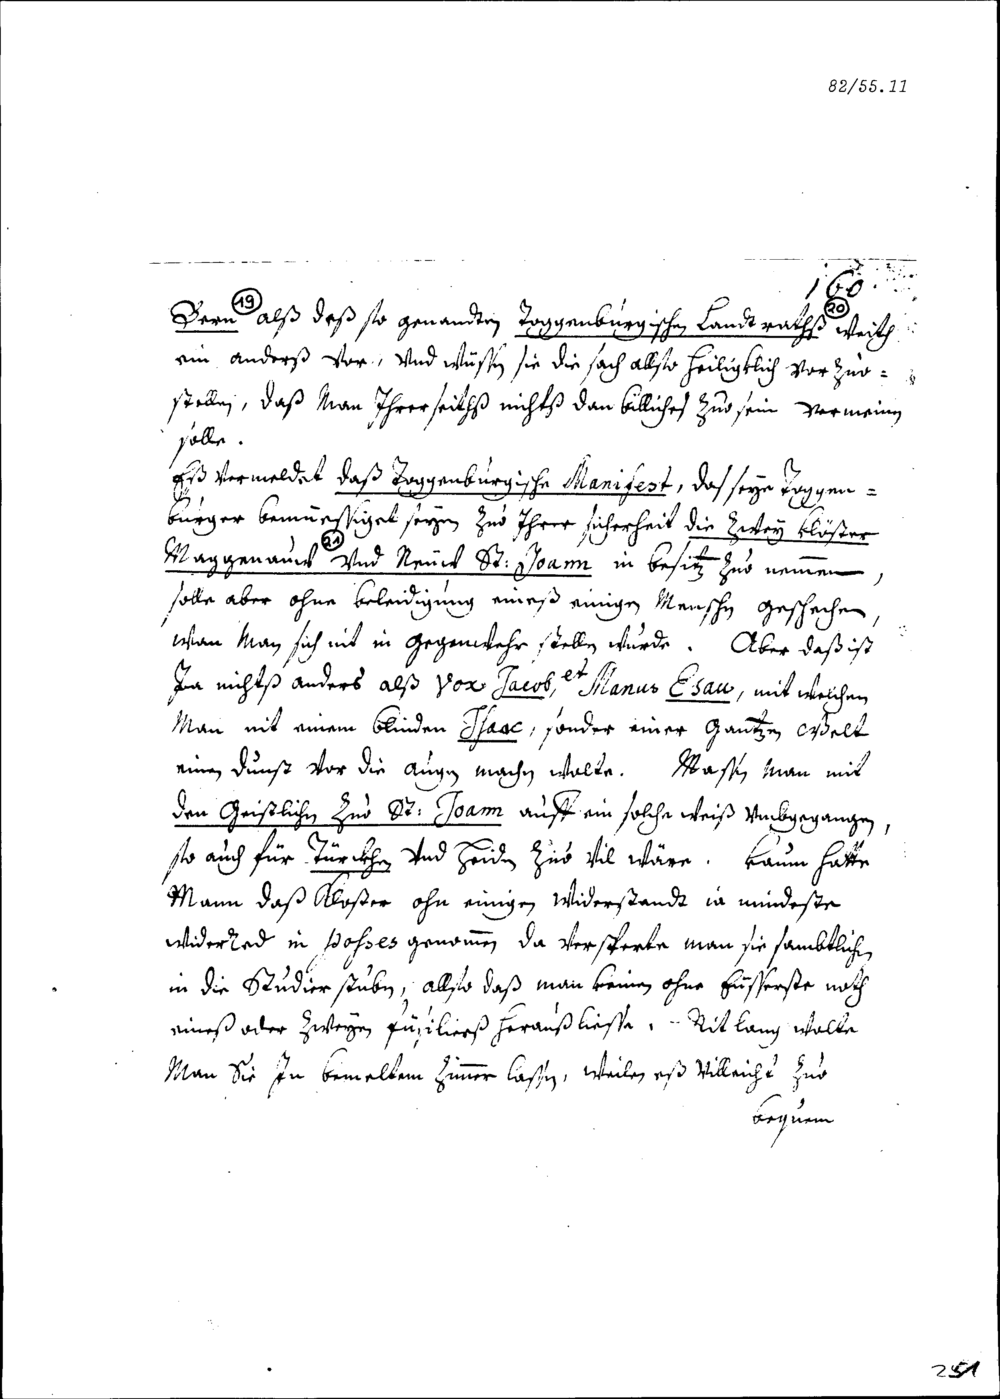 82/55.11
160.
Bern (19) alß deß so genandten Toggenburgischen Landt rathß (20) weith
ein anderß vor, vnd wüssen sie die sach allso heiligklich vor zuo=
stellen, daß Man Ihrerseithß nichtß dan billiches zuo sein vermeinen
solle.
Eß vermeldet daß Toggenburgische Manifest, das seye Toggen=
burger bemüessiget seyen zuo Ihrer sicherheit die zwey klöster
Maggenauw (21) vnd Neuw St: Joann in besitz zuo nemmen,
solle aber ohne beleidigung eineß einigen Menschen geschechen,
wan Man sich nit in gegenwehr stellen wurde. Aber daß ist
Ja nichtß anders alß Vox Jacob, et Manus Esau, mit welchen
Man nit einem blinden Isaac, sonder einer gantzen Welt
einen dunst vor die augen machen wolte. Massen Man mit
den Geistlichen zuo St: Joann auff ein solche weiß vmbgegangen,
so auch für Türckhen vnd Heiden zuo vil wäre. Kaum hatte
Mann daß Kloster ohn einigen widerstandt ia mindeste
widerred in posses genommen da versperte man sie sambtlichen
in die Studier stuben, allso daß man keinen ohne eüsserste noth
eineß oder zweyen füsilierß heraußliesse. Nit lang wolte
Man Sie In bemeltem zimmer lassen, weilen eß villeicht zuo
bequem
251